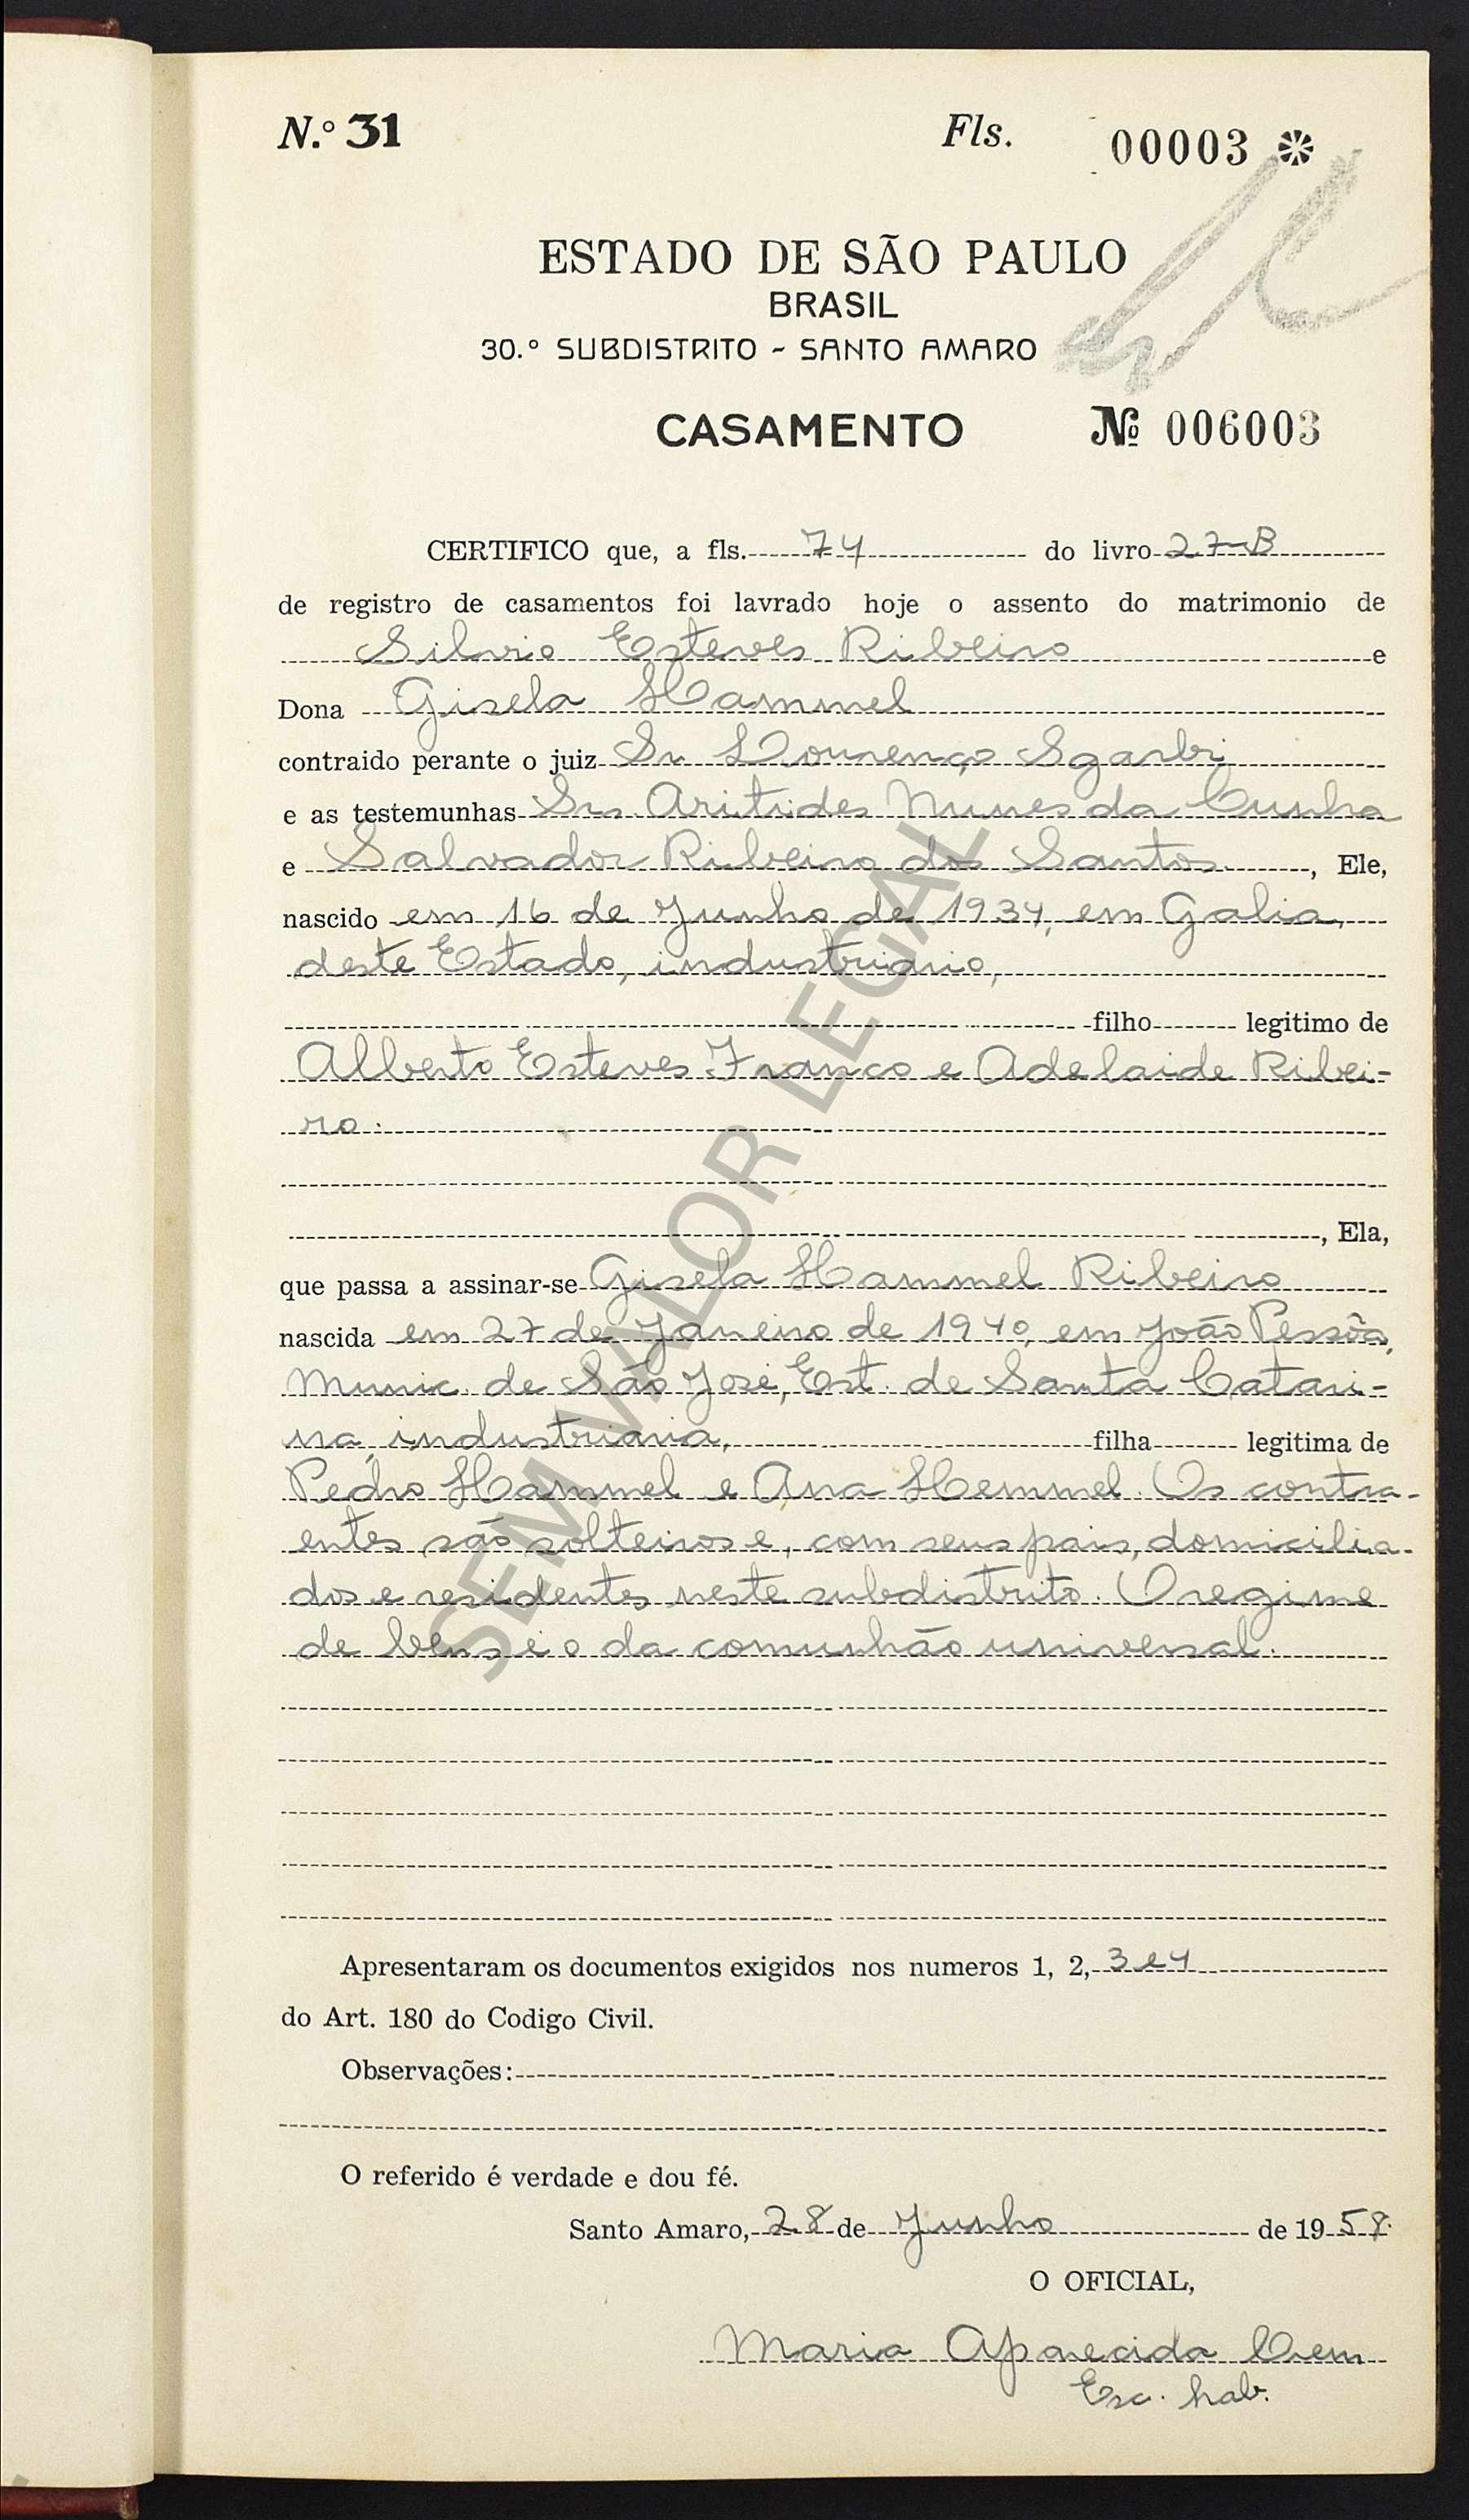 N.º 31 Fls. 00003
ESTADO DE SÃO PAULO
BRASIL
30.º SUBDISTRITO - SANTO AMARO
CASAMENTO Nº 006003
CERTIFICO que, a fls. 74 do livro 27-B
de registro de casamentos foi lavrado hoje o assento do matrimonio de
Silvio Esteves Ribeiro e
Dona Gisela Hammel
contraido perante o juiz Sr Lourenço Sgarbi
e as testemunhas Srs. Aristides Nunes da Cunha
e Salvador Ribeiro dos Santos, Ele,
nascido em 16 de Junho de 1934, em Galia,
deste Estado, industriario,
filho legitimo de
Alberto Esteves Franco e Adelaide Ribei-
ro.
, Ela,
que passa a assinar-se Gisela Hammel Ribeiro
nascida em 27 de Janeiro de 1940, em João Pessôa,
Munic. de São José, Est. de Santa Catari-
na, industriaria, filha legitima de
Pedro Hammel e Ana Hemmel. Os contra-
entes são solteiros e, com seus pais, domicilia-
dos e residentes neste subdistrito. O regime
de bens é o da comunhão universal.
Apresentaram os documentos exigidos nos numeros 1, 2, 3 e 4
do Art. 180 do Codigo Civil.
Observações:
O referido é verdade e dou fé.
Santo Amaro, 28 de Junho de 1958.
O OFICIAL,
Maria Aparecida
Esc. hab.
SEM VALOR LEGAL